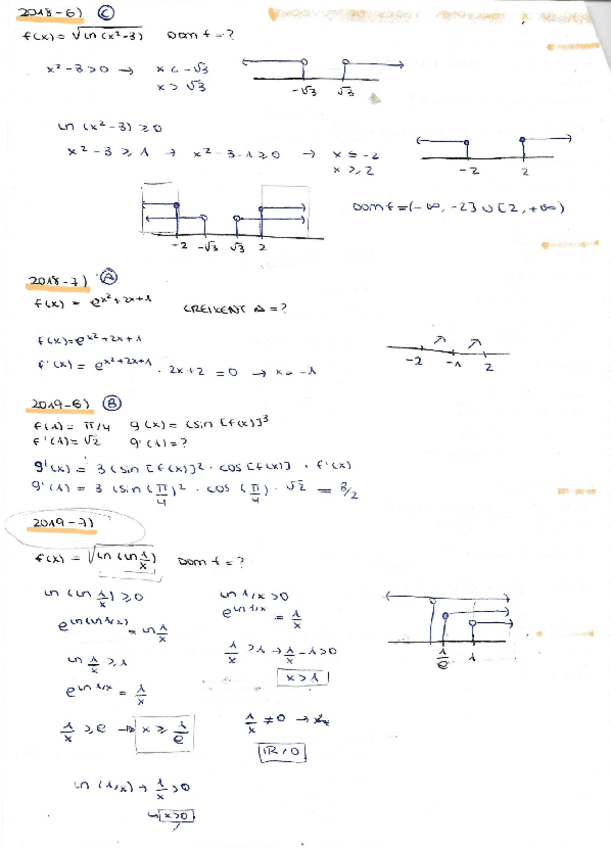 2018-6) C
f(x) = √(ln(x²-3)) Dom f = ?
x²-3>0 → x < -√3
x > √3
-√3 √3
ln(x²-3) ≥ 0
x²-3 ≥ 1 → x²-3-1 ≥ 0 → x ≤ -2
x ≥ 2
-2 2
-2 -√3 √3 2
Dom f = (-∞, -2] ∪ [2, +∞)
2018-7) A
f(x) = e^(x²+2x+1) CREIXENT Δ = ?
f(x) = e^(x²+2x+1)
f'(x) = e^(x²+2x+1) · 2x+2 = 0 → x = -1
-2 -1 2
2019-6) B
f(1) = π/4 g(x) = (sin[f(x)])³
f'(1) = √2 g'(1) = ?
g'(x) = 3(sin[f(x)]² · cos[f(x)] · f'(x)
g'(1) = 3(sin(π/4)² · cos(π/4) · √2 = 3/2
2019-7)
f(x) = √(ln(ln 1/x)) Dom f = ?
ln(ln 1/x) ≥ 0
e^(ln(ln 1/x)) = ln 1/x
ln 1/x ≥ 1
e^(ln 1/x) = 1/x
1/x ≥ e → x ≥ 1/e
ln(1/x) → 1/x > 0
→ x>0
ln 1/x > 0
e^(ln 1/x) = 1/x
1/x > 1 → 1/x - 1 > 0
x > 1
1/x ≠ 0 →
ℝ/0
1/e 1